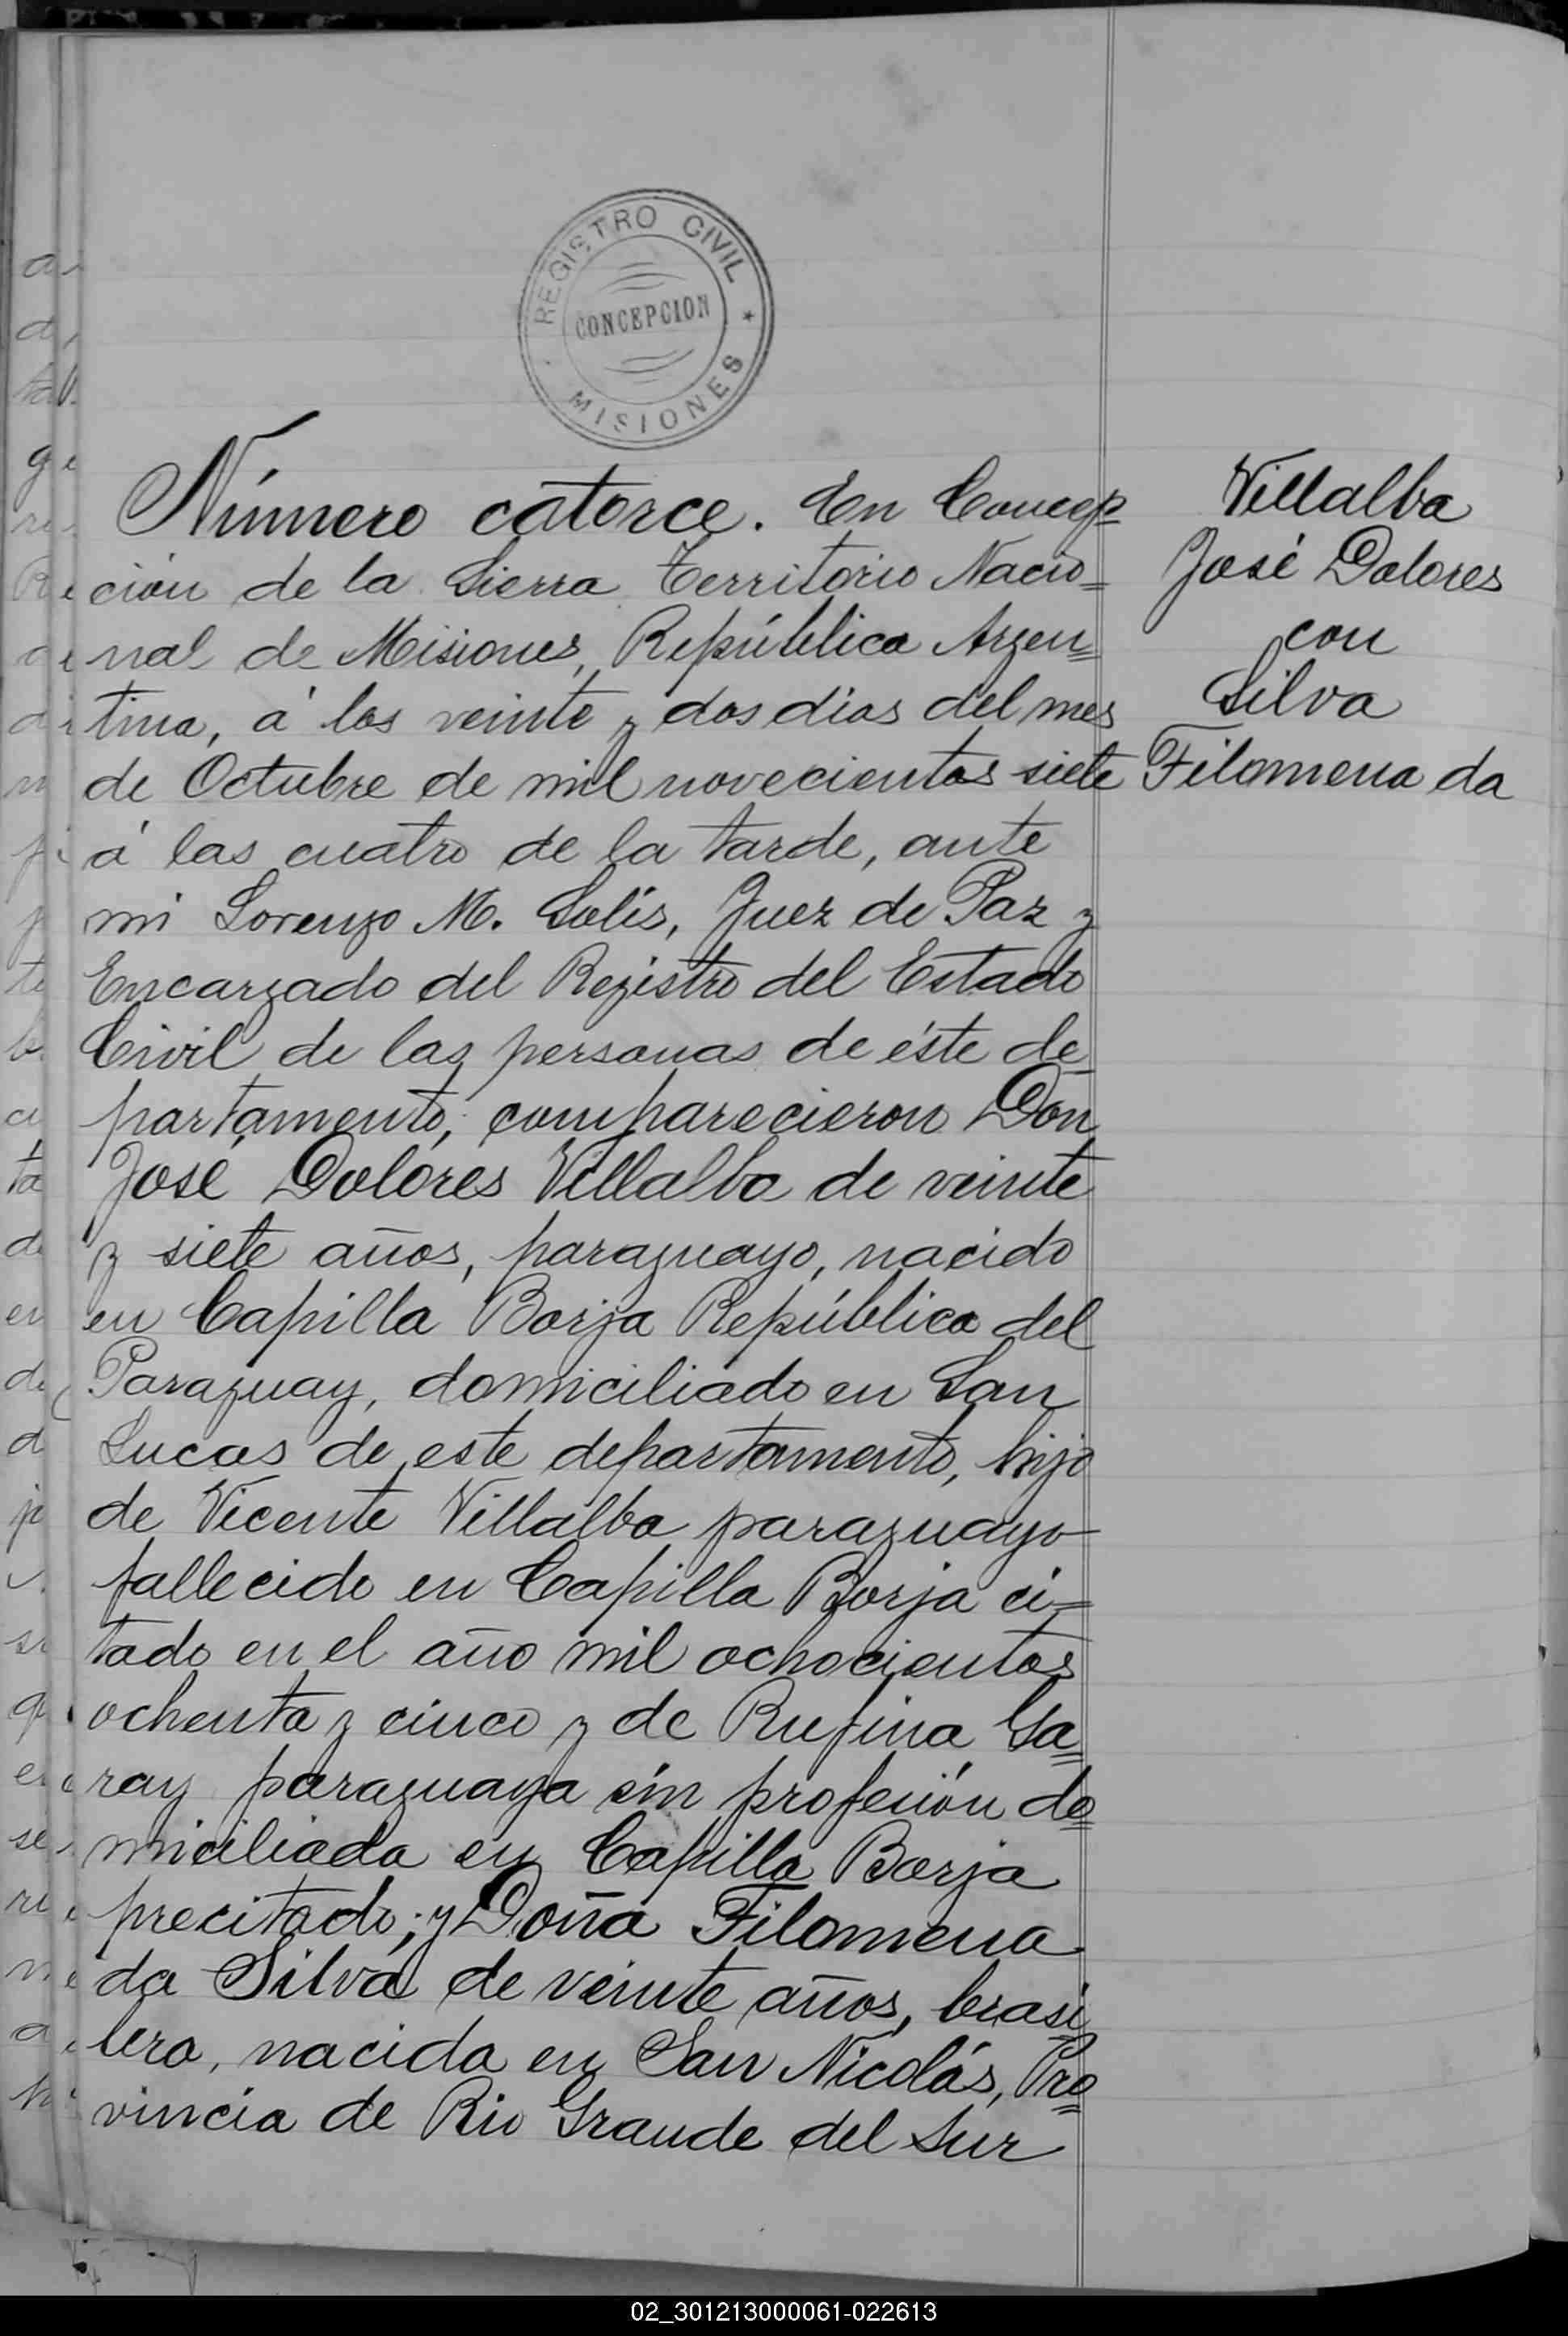 REGISTRO CIVIL
CONCEPCION
MISIONES
Número catorce. En Concep
ción de la Sierra Territorio Nacio=
nal de Misiones, República Argen=
tina, á los veinte y dos dias del mes
de Octubre de mil novecientos siete
á las cuatro de la tarde, ante
mi Lorenzo M. Solís, Juez de Paz y
Encargado del Registro del Estado
Civil de las personas de éste de_
partamento, comparecieron Don
José Dolores Villalba de veinte
y siete años, paraguayo, nacido
en Capilla Borja República del
Paraguay, domiciliado en San
Lucas de este departamento, hijo
de Vicente Villalba paraguayo
fallecido en Capilla Borja ci=
tado en el año mil ochocientos
ochenta y cinco y de Rufina Ga=
ray paraguaya sin profesión do=
miciliada en Capilla Borja
precitado; y Doña Filomena
da Silva de veinte años, brasi_
lera, nacida en San Nicolás, Pro=
vincia de Rio Grande del Sur
Villalba
José Dolores
con
Silva
Filomena da
02_301213000061-022613